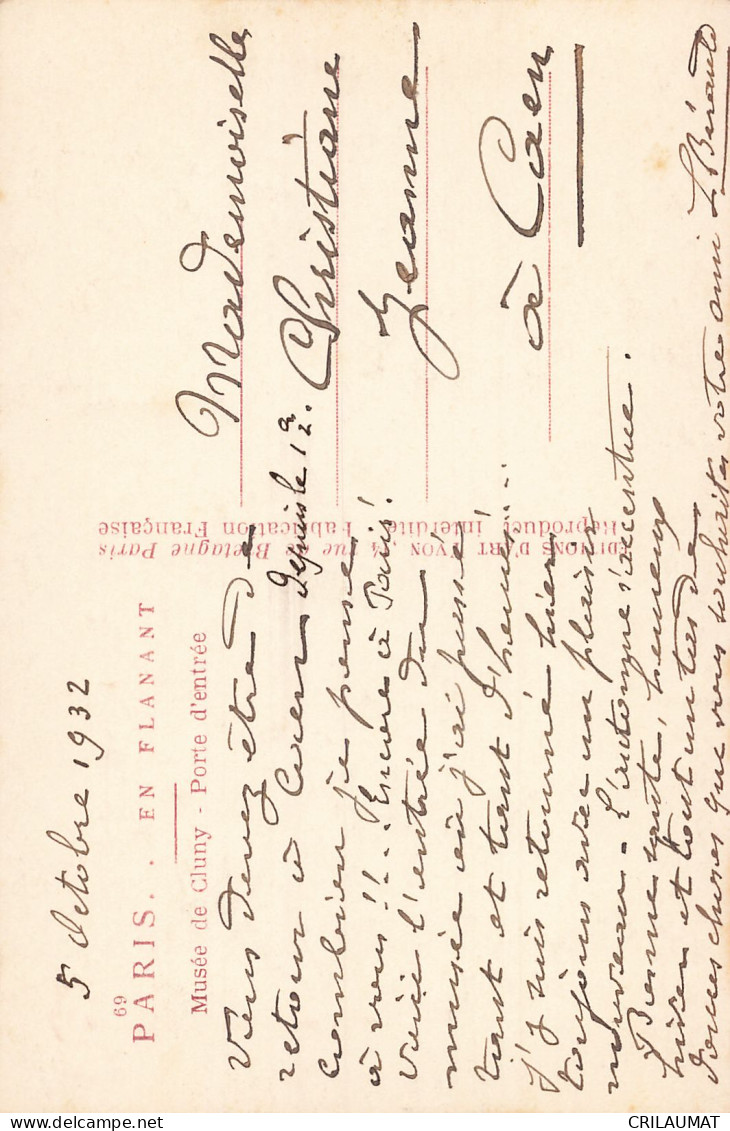 5 Octobre 1932
69
PARIS. . EN FLANANT
Musée de Cluny - Porte d'entrée
Vous devez être de
retour à Caen depuis le 1er.
combien je pense
à vous !!... Encore à Paris!
Voici l'entrée du
musée où j'ai passé
tant et tant d'heures...
J'y suis retourné hier
toujours avec un plaisir
nouveau - L'automne s'accentue.
Bonne santé, heureux
et tout un tas de
douces choses que vous souhaite votre ami L. Bérault
ÉDITIONS D'ART YVON, rue de Bretagne Paris
Reproduct. interdite. Fabrication Française
Mademoiselle
Christiane
Jeanne
à Caen
CRILAUMAT